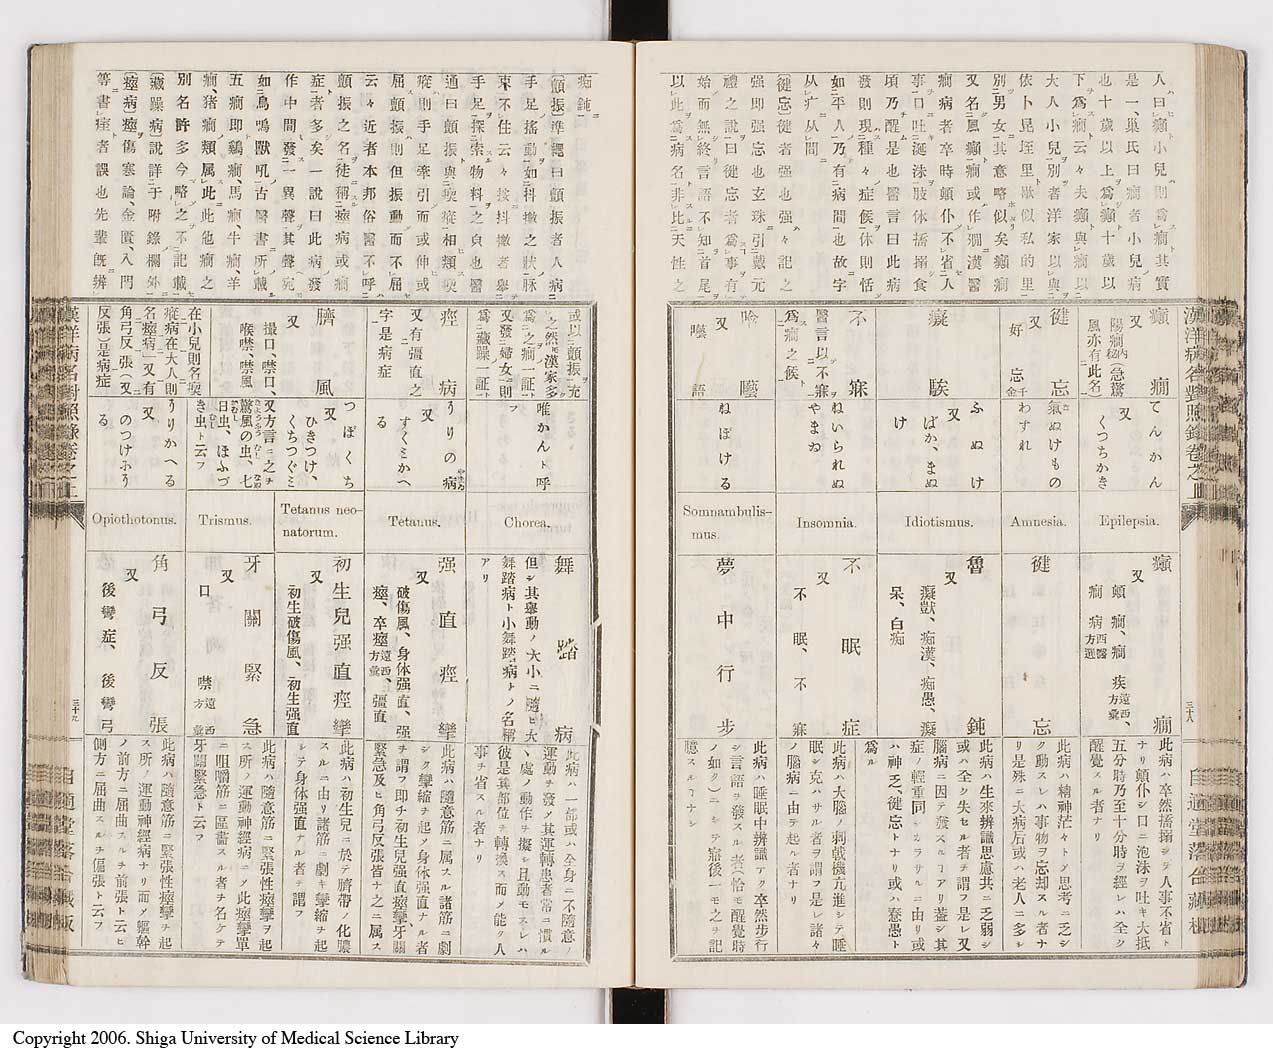 人ニ曰ㇾ癲小兒ニ則爲ㇾ癇ト其實
是一、巢氏曰癇者小兒ノ病
也十歲以上爲ㇾ癲ト十歲以
下爲ㇾ癇ト云々夫癲ト與ㇾ癇以
大人小兒別者洋家以與
依卜昆垤里歇似私的里
別男女其意略似矣癲癇
又名風癲癇或作癎漢醫
癇病者卒時顛仆不省人
事口吐涎沫肢体搐搦食
頃乃醒是也醫言曰此病
發則現種々症候休則恬
如平人乃有病間也故字
从疒从間
(健忘)健者强也强々記之
强即强忘也玄珠引戴元
禮之說曰健忘者爲事有
始而無終言語不知首尾
以此爲病名非比天性之
癲癇
陽癇 急驚
風亦有此名
てんかん
又
くつちかき
Epilepsia.
癲癇
又
顛癇、癇疾 遠西方彙、
癇病 西醫方選
此病ハ卒然搐搦シテ人事不省ト
ナリ顛仆シ口ニ泡沫ヲ吐キ大抵
五分時乃至十分時ヲ經レハ全ク
醒覺スル者ナリ
健忘
又
好忘 千金
氣ぬけもの
わすれ
Amnesia.
健忘
此病ハ精神茫々トノ思考ニ乏シ
ク動スレハ事物ヲ忘却スル者ナ
リ是殊ニ大病后或ハ老人ニ多シ
癡騃
ふぬけ
又
ばか、まぬ
け
Idiotismus.
魯鈍
又
癡獃、痴漢、痴愚、癡
呆、白痴
此病ハ生來辨識思慮共ニ乏弱シ
或ハ全ク失セル者チ謂フ是レ又
腦病ニ因テ發スルヿアリ蓋シ其
症ノ輕重同シカラサルニ由リ或
ハ神乏、健忘トナリ或ハ惷愚ト
爲ル
不寐
醫言以不寐
爲癇之候
ねいられぬ
やまゐ
Insomnia.
不眠症
又
不眠、不寐
此病ハ大腦ノ刺戟機亢進シテ睡
眠シ克ハサル者ヲ謂フ是レ諸々
ノ腦病ニ由テ起ル者ナリ
吟囈
又
囈語
ねぼける
Somnambulis-
mus.
夢中行步
此病ハ睡眠中辨識ナク卒然步行
シ言語ヲ發スル者(恰モ醒覺時
ノ如ク)ニシテ寤後一モ之チ記
臆スルヿナシ
漢洋病名對照錄卷之上
三十八
自適堂落合藏板
痴鈍
(顫振)準繩曰顫振者人病
手足搖動如抖擻之狀脉
束不住云々按抖擻者擧
手足探索物料之貞也醫
通曰顫振與瘈瘲相類瘈
瘲則手足牽引而或伸或
屈顫振則但振動而不屈
云々近者本邦俗醫不呼
顫振之名徒稱瘛病或癇
症者多矣一說曰此病發
作中間發一異聲其聲宛
如鳥鳴獸吼古醫書所載
五癇即鷄癇馬癇、牛癇、羊
癇、猪癇類属此此他癇之
別名許多今略之不記載
(藏躁病)說詳于附錄欄外
(痙病)痙傷寒論、金匱、入門
等書痓者誤也先輩既辨
或以顫振充
之然漢家多
爲之癇一証
又發婦女則
爲藏躁一証
唯かんト呼
フ
Chorea.
舞踏病
但シ其擧動ノ大小ニ隨ヒ大
舞踏病ト小舞踏病トノ名稱
アリ
此病ハ一部或ハ全身ニ不隨意ノ
運動チ發ノ其運轉患者常ニ慣ル
ヽ處ノ動作ヲ擬シ且動モスレハ
彼是其部位チ轉換ス而メ能ク人
事チ省スル者ナリ
痙病
又有彊直之
字是病症
うりの病
又
すくミかへ
る
Tetanus.
强直痙攣
又
破傷風、身体强直、强
痙、卒痙 遠西方彙、彊直
此病ハ隨意筋ニ属スル諸筋ニ劇
シク攣縮チ起ノ身体强直ナル者
チ謂フ即チ初生兒强直痙攣、牙關
緊急及ヒ角弓反張皆ナ之ニ属ス
臍風
又
撮口、噤口、
喉噤、噤風
つぼくち
又
ひきつけ、
くちつぐミ
又方言ニ之チ
驚風の虫、七
日虫、ほふづ
き虫ト云フ
Tetanus neo-
natorum.
初生兒强直痙攣
又
初生破傷風、初生强直
此病ハ初生兒ニ於テ臍帶ノ化膿
スルニ由リ諸筋ニ劇キ攣縮チ起
シテ身体强直ナル者チ謂フ
Trismus.
牙關緊急
又
噤口 遠西方彙
此病ハ隨意筋ニ緊張性痙攣ヲ起
ス所ノ運動神經病ニノ此痙攣單
ニ咀嚼筋ニ區齒スル者チ名ケテ
牙關緊急ト云フ
在小兒則名瘈
瘲病在大人則
名痙病一又有
角弓反張(又
反張)是病症
うりかへる
又
のつけふう
る
Opiothotonus.
角弓反張
又
後彎症、後彎弓
此病ハ隨意筋ニ緊張性痙攣チ起
ス所ノ運動神經病ナリ而メ軀幹
ノ前方ニ屈曲スルチ前張ト云ヒ
側方ニ屈曲スルチ偏張ト云フ
漢洋病名對照錄卷之上
三十九
自適堂落合藏板
Copyright 2006. Shiga University of Medical Science Library